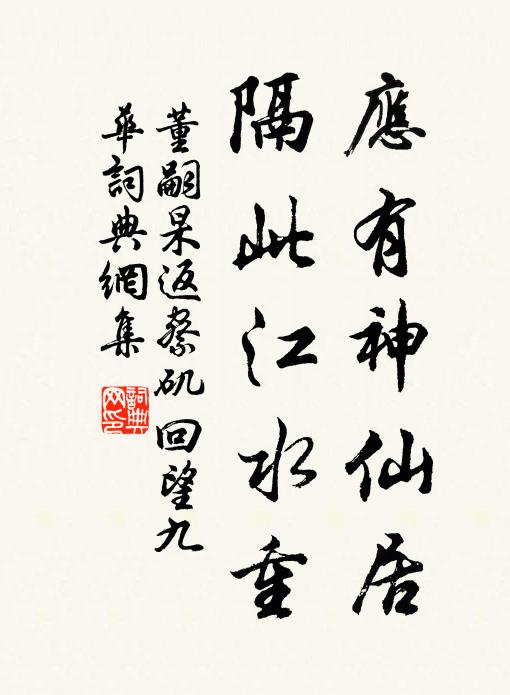 應有神仙居
隔此江水重
董嗣杲返棹磯回望九
華詞典網集
詞典网印